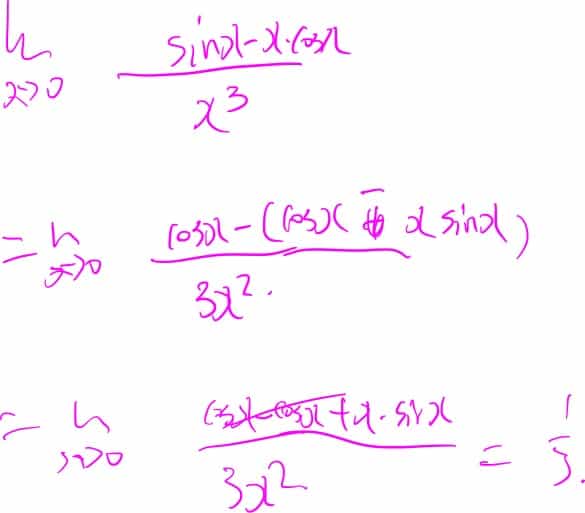 lim x→0 (sinx - x·cosx) / x³
= lim x→0 (cosx - (cosx - x sinx)) / 3x².
= lim x→0 (cosx - cosx + x·sinx) / 3x² = 1/3.